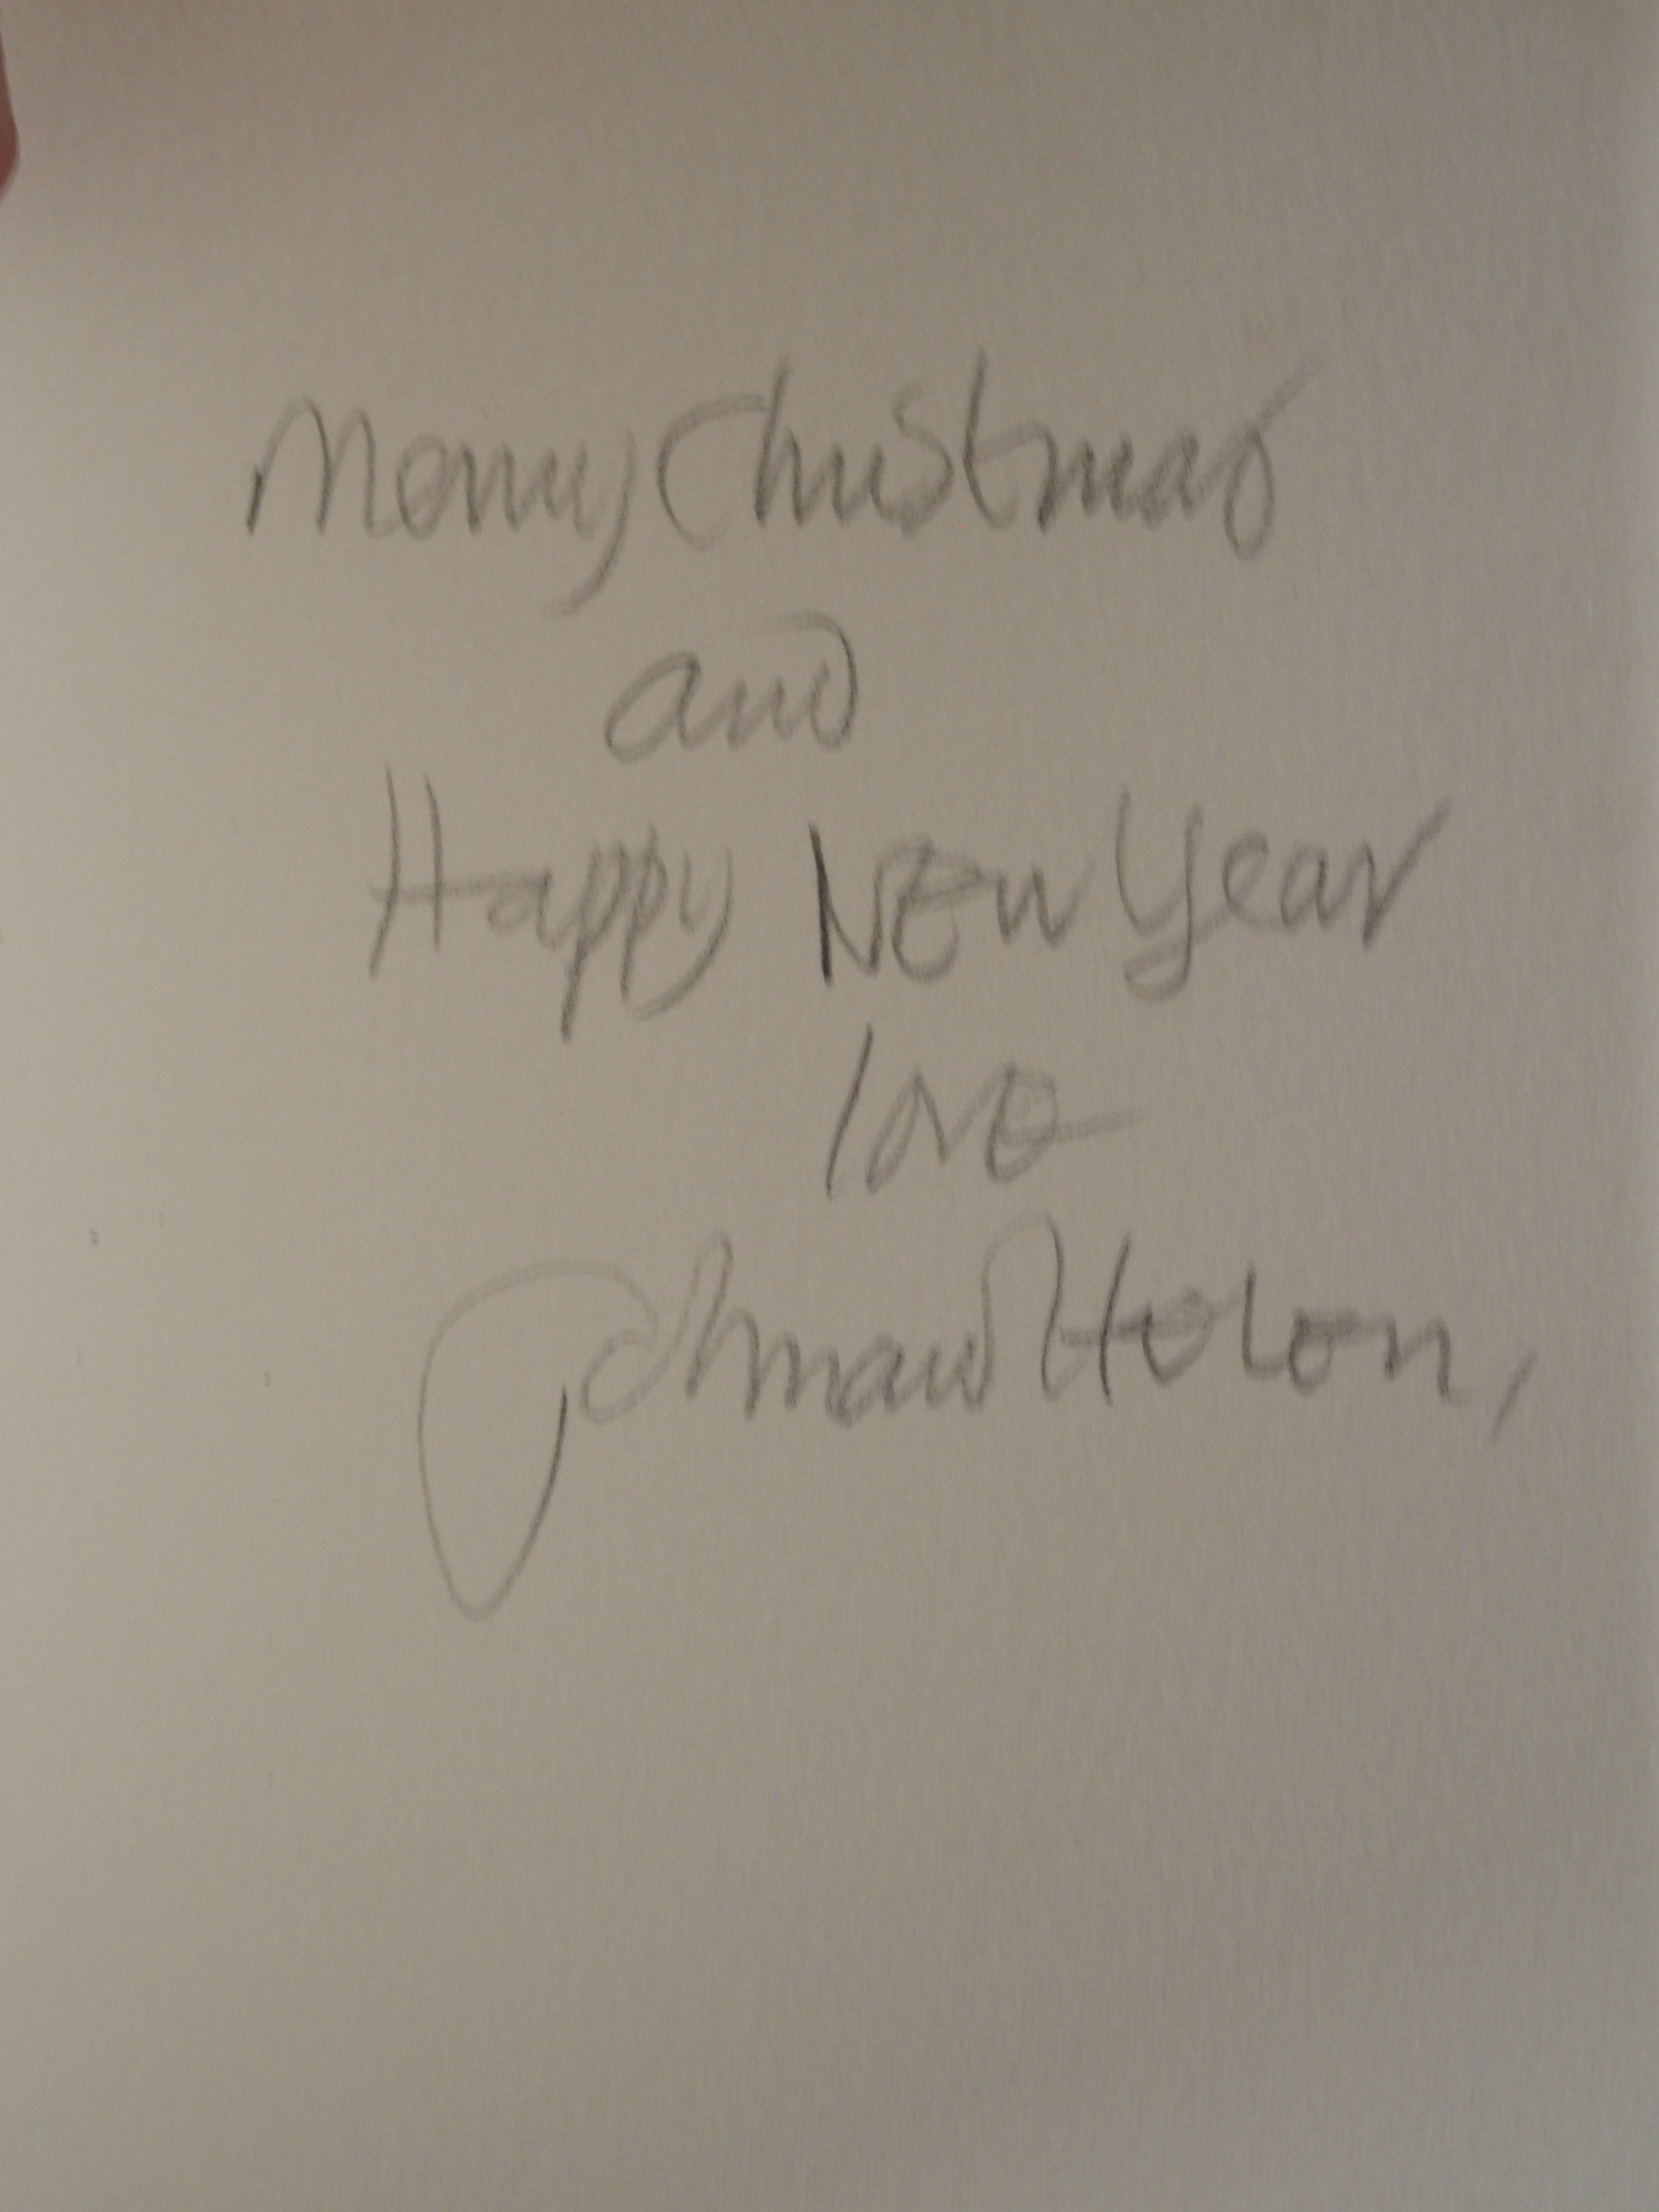 Merry Christmas
and
Happy New Year
love
John and Helen,